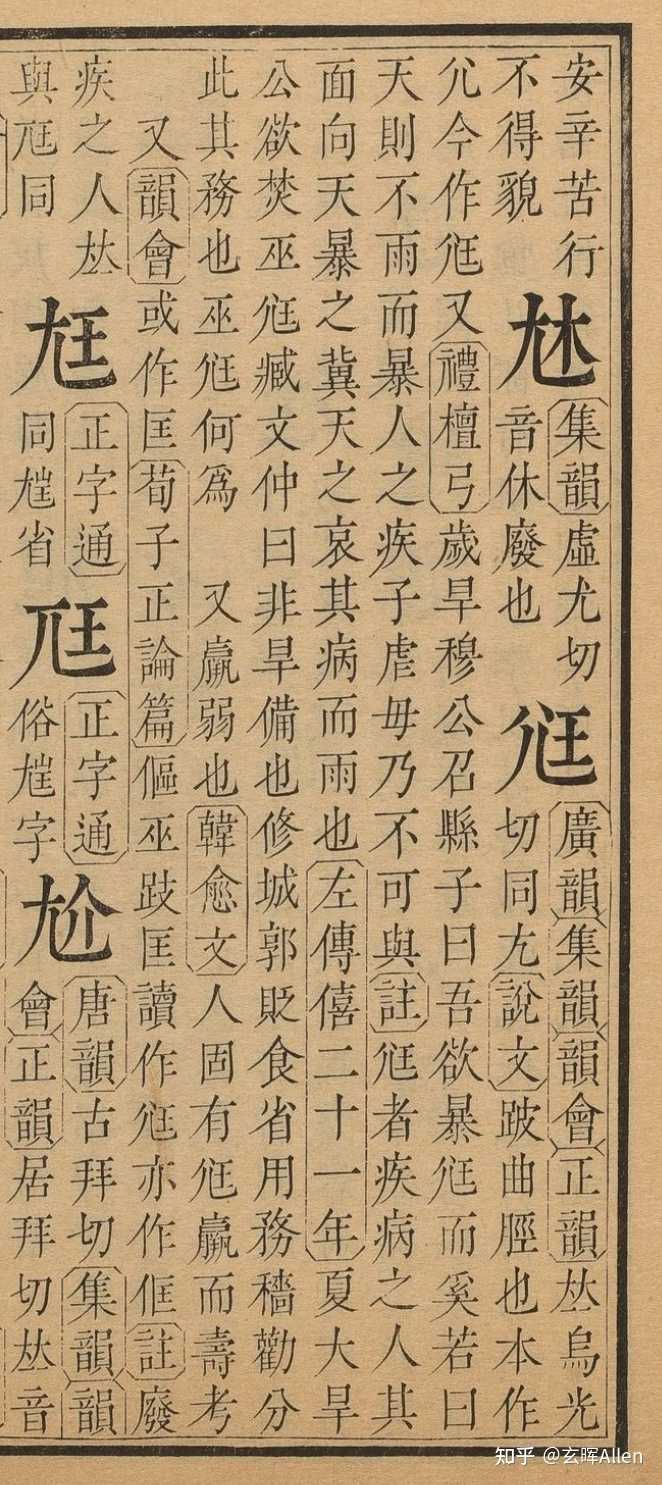 安辛苦行
不得貌
集韻虛尤切
音休廢也
尪
廣韻集韻韻會正韻𠀤烏光
切同尢說文跛曲脛也本作
尣今作尪又禮檀弓歲旱穆公召縣子曰吾欲暴尪而奚若曰
天則不雨而暴人之疾子虐毋乃不可與註尪者疾病之人其
面向天暴之冀天之哀其病而雨也左傳僖二十一年夏大旱
公欲焚巫尪臧文仲曰非旱備也修城郭貶食省用務穡勸分
此其務也巫尪何爲 又羸弱也韓愈文人固有尪羸而壽考
又韻會或作匡荀子正論篇傴巫跂匡讀作尪亦作㑌註廢
疾之人𠀤
與尫同
尫
正字通
同尩省
正字通
俗尩字
尬
唐韻古拜切集韻韻
會正韻居拜切𠀤音
知乎 @玄晖Allen